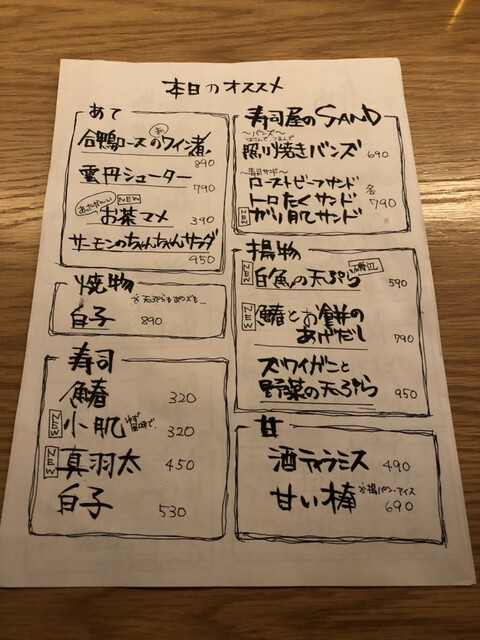 本日のオススメ
あて
合鴨ロースの赤ワイン煮
890
雲丹シューター
790
あったか〜い NEW
お茶マメ 390
サーモンのちゃんちゃんサラダ
950
焼物
※天ぷらもポン酢も...
白子 890
寿司
鰆 320
NEW 小肌 ゆず風味で 320
NEW 真羽太 450
白子 530
寿司屋のSAND
〜バンズ〜
はさんで つまんで
照り焼きバンズ 690
〜寿司サンド〜
ローストビーフサンド
トロたくサンド 各790
NEW ガリ〆サンド
揚物
NEW 白魚の天ぷら 590
NEW 鰆とお餅の
あげだし 790
ズワイガニと
野菜の天ぷら 950
甘
酒ティラミス 490
甘い棒 ※揚パン・アイス
690